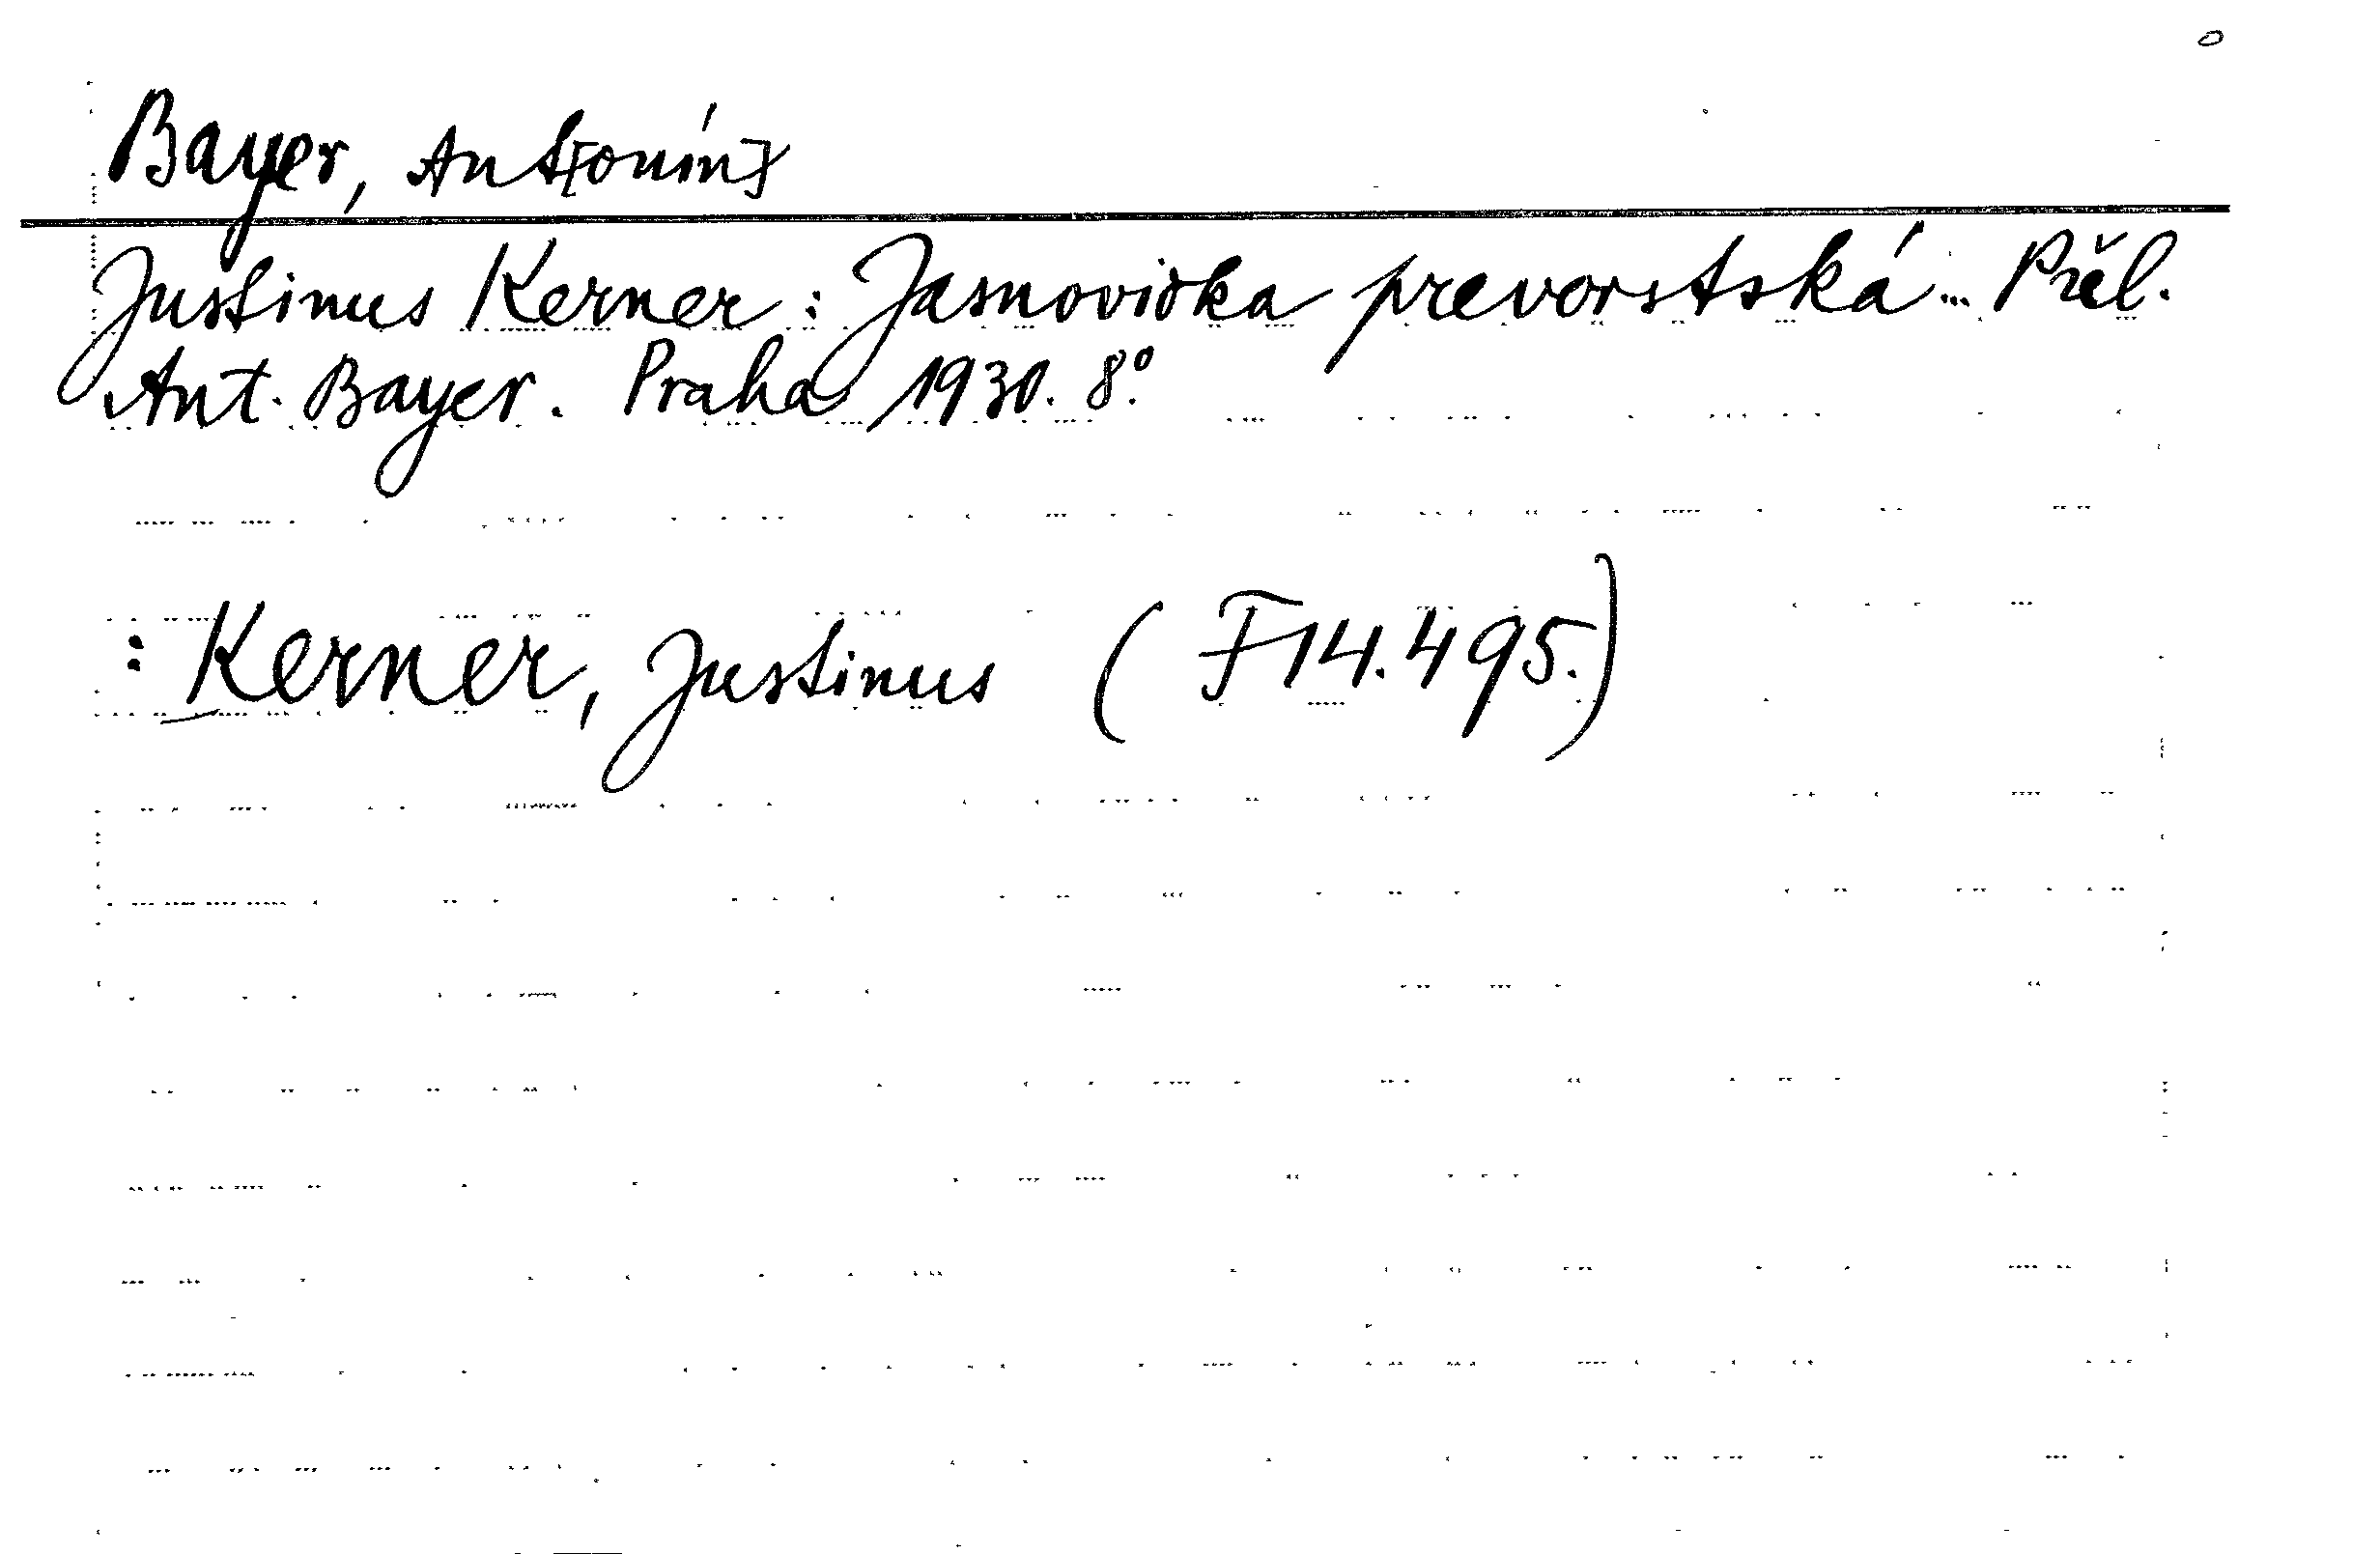 Bayer, Ant[onín]
Justinus Kerner: Jasnovidka prevorstská... Přel.
Ant. Bayer. Praha 1930. 8°.
: Kerner, Justinus (F 14.495.)